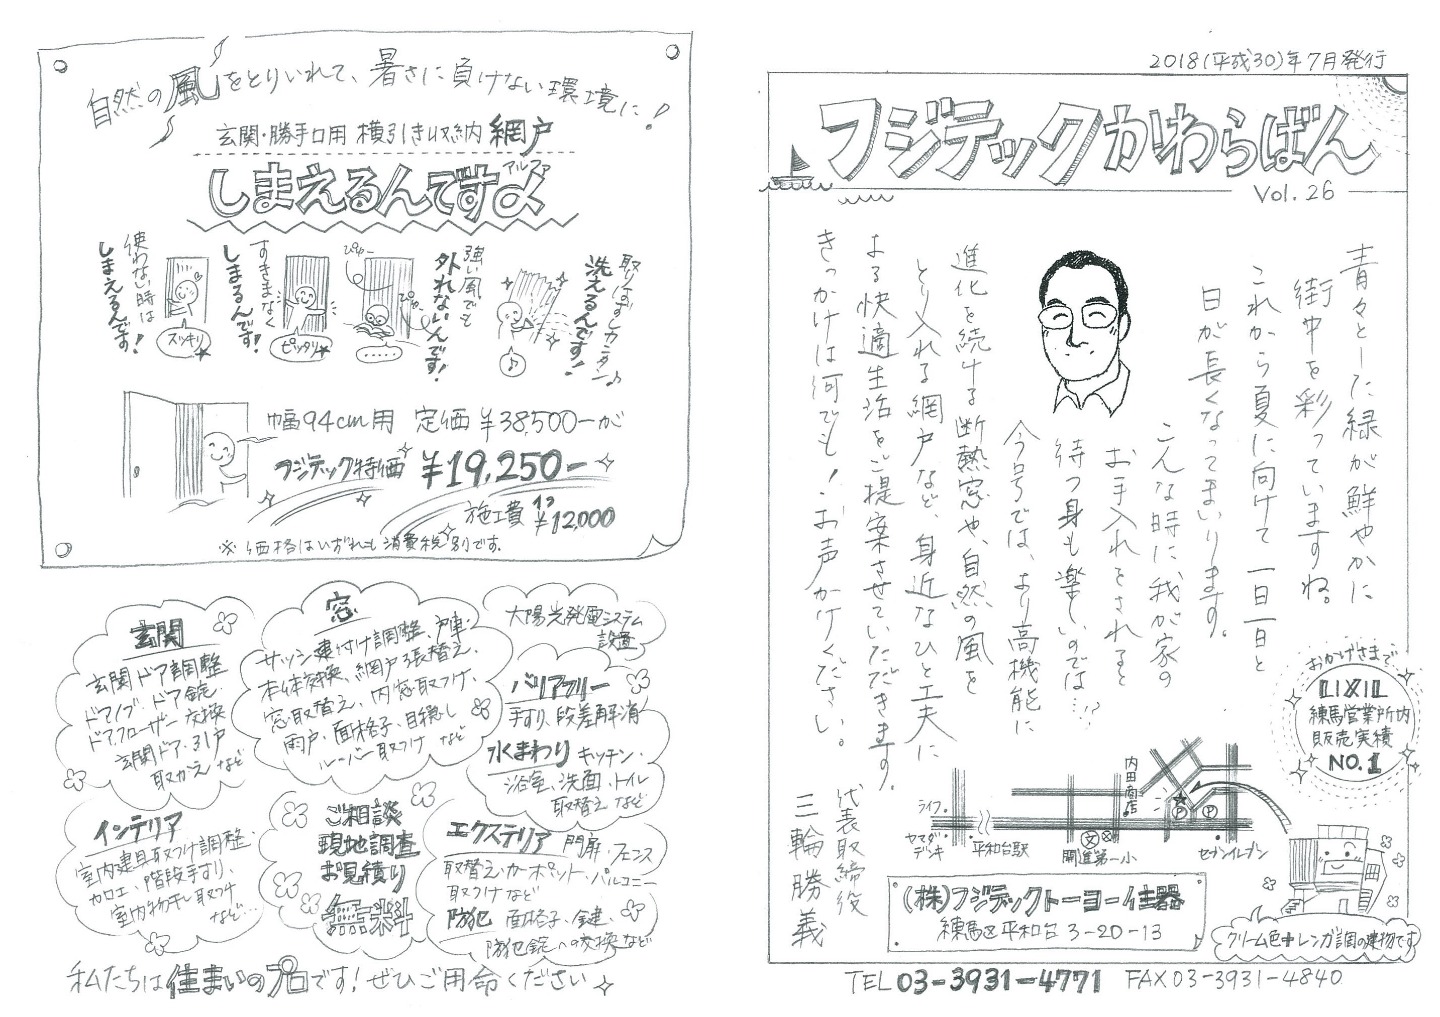 2018(平成30)年7月発行
フジテックかわらばん
Vol.26
青々とした緑が鮮やかに
街中を彩っていますね。
これから夏に向けて一日一日と
日が長くなってまいります。
こんな時に、我が家の
お手入れをされると
待つ身も楽しいのでは…!?
今号では、より高機能に
進化を続ける断熱窓や、自然の風を
とり入れる網戸など、身近なひと工夫に
よる快適生活をご提案させていただきます。
きっかけは何でも!お声かけください。
代表取締役
三輪勝義
おかげさまで
LIXIL
練馬営業所内
販売実績
NO.1
ライフ
ヤマダデンキ
平和台駅
内田商店
開進第一小
文
P
P
セブンイレブン
(株)フジテックトーヨー住器
練馬区平和台3-20-13
クリーム色+レンガ調の建物です
TEL 03-3931-4771 FAX 03-3931-4840
自然の風をとりいれて、暑さに負けない環境に!
玄関・勝手口用 横引き収納 網戸
しまえるんですα
アルファ
取りはずしカンタン♪
洗えるんです!
♪
強い風でも
外れないんです!
ぴゅー
ぴゅー
・・・・・
すきまなく
しまるんです!
ピッタリ
使わない時は
しまえるんです!
スッキリ
幅94cm用 定価¥38,500-が
フジテック特価 ¥19,250-
施工費 1ヶ ¥12,000
※価格はいずれも消費税別です。
玄関
玄関ドア調整
ドアノブ・ドア錠・
ドアクローザー交換
玄関ドア・引戸
取かえ など
窓
サッシ建付け調整、戸車・
本体交換、網戸張替え、
窓取替え、内窓取つけ、
雨戸、面格子、目隠し
ルーバー取つけ など
太陽光発電システム
設置
バリアフリー
手すり、段差解消
水まわり キッチン・
浴室、洗面、トイレ
取替え など
インテリア
室内建具取つけ調整・
加工、階段手すり、
室内物干し取つけ
など…
ご相談
現地調査
お見積り
無料
エクステリア 門扉・フェンス
取替え・カーポート・バルコニー
取つけなど
防犯 面格子、鍵、
防犯錠への交換など
私たちは住まいのプロです!ぜひご用命ください